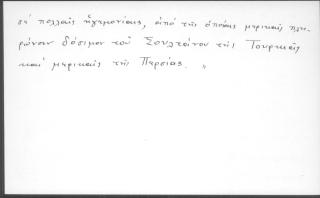 σέ πολλαίς ἡγεμονίαις, ἀπό τῆς ὁποίας μερικαίς πλη-
ρώνουν δόσιμον τοῦ Σουλτάνου τῆς Τουρκιᾶς
καί μερικαίς τῆς Περσίας. "